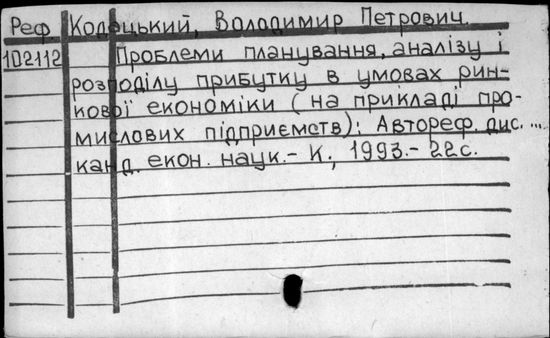 Реф. Кодацький, Володимир Петрович.
102112 Проблеми планування, аналізу і
розподілу прибутку в умовах рин-
кової економіки (на прикладі про-
мислових підприємств): Автореф. дис. ...
канд. екон. наук. - К., 1993. - 22с.